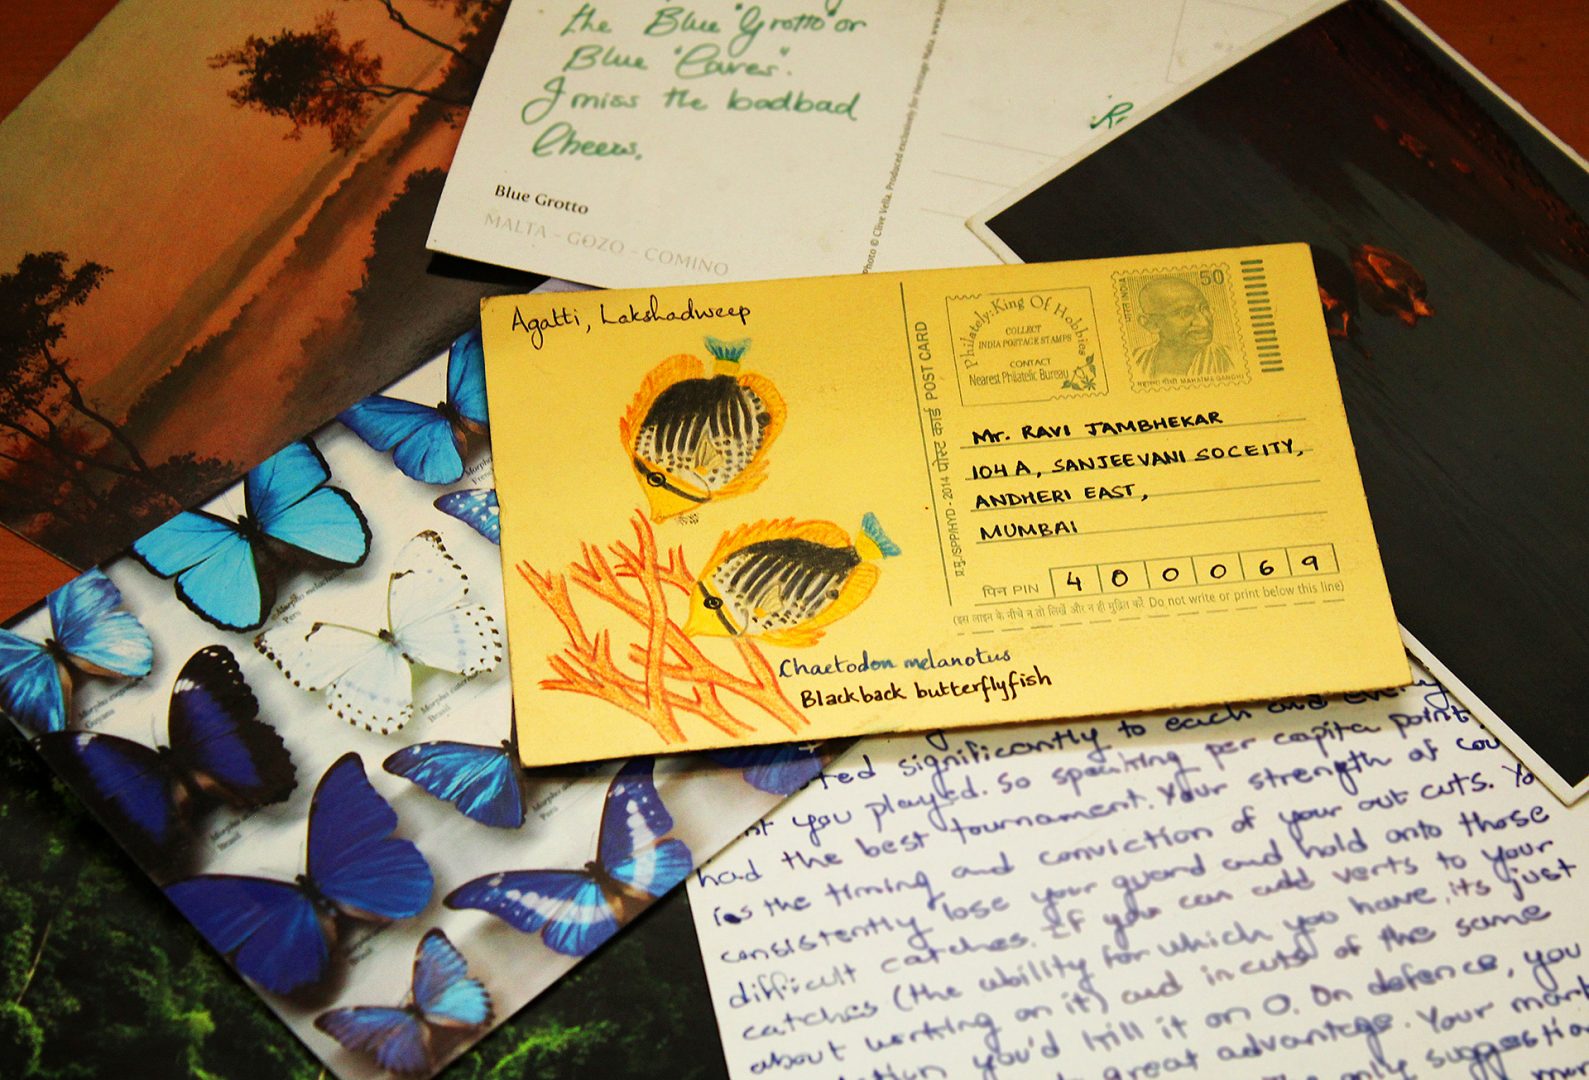 the Blue "Grotto" or
Blue "Caves".
I miss the badbad
Cheers.
Blue Grotto
MALTA - GOZO - COMINO
Photo © Clive Vella. Produced exclusively for Heritage Malta.
Agatti, Lakshadweep
Chaetodon melanotus
Blackback butterflyfish
2014 पोस्ट कार्ड POST CARD
Philately: King Of Hobbies
COLLECT
INDIA POSTAGE STAMPS
CONTACT
Nearest Philatelic Bureau
50
भारत INDIA
महात्मा गांधी MAHATMA GANDHI
Mr. RAVI JAMBHEKAR
104 A, SANJEEVANI SOCEITY,
ANDHERI EAST,
MUMBAI
पिन PIN 400069
(इस लाइन के नीचे न तो लिखें और न ही मुद्रित करें Do not write or print below this line)
significantly to each and every
you played. So speaking per capita point
had the best tournament. Your strength of
is the timing and conviction of your out cuts.
consistently lose your guard and hold onto those
difficult catches. If you can add verts to your
catches (the ability for which you have, its just
about working on it) and in cuts of the same
you'd kill it on O. On defence, you
great advantage. Your
only suggestion